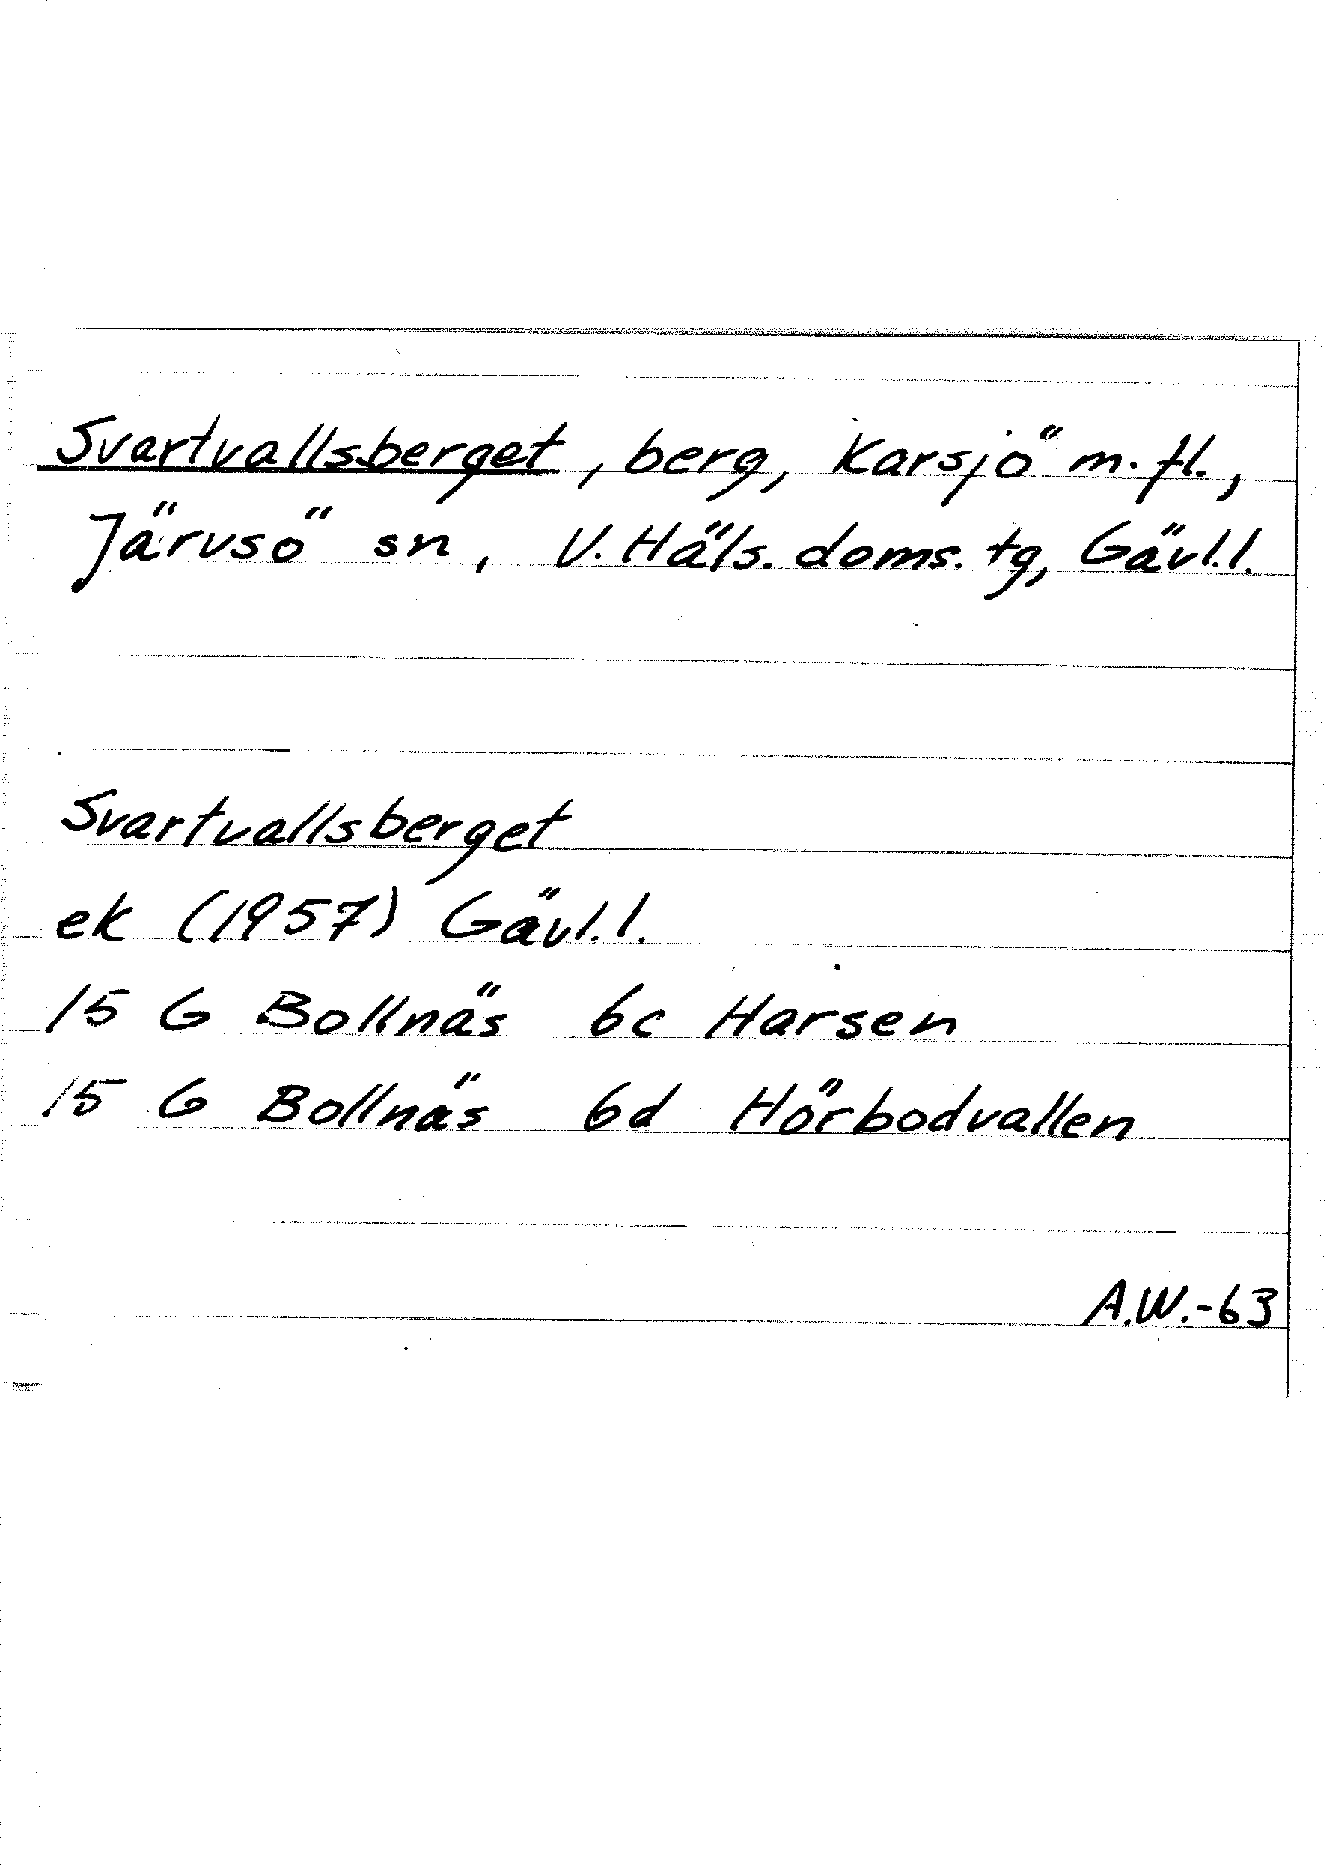 Svartvallsberget, berg, Karsjö m.fl.,
Järvsö sn, V. Häls. doms. tg, Gävl.l.
Svartvallsberget
ek (1957) Gävl.l.
15 G Bollnäs 6c Harsen
15 G Bollnäs 6d Hörbodvallen
A.W.-63